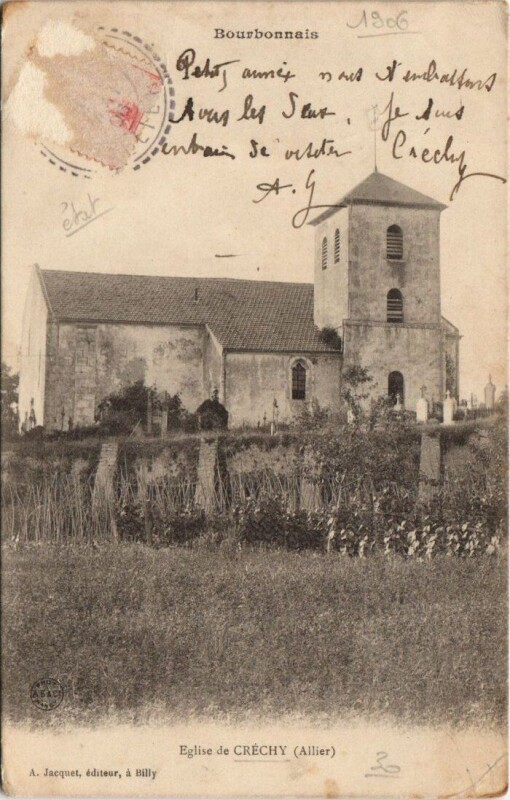 Bourbonnais
1906
Petit, année nous t'embrassons
tous les deux, je suis
entrain de visiter Créchy
A. G
état
Eglise de CRÉCHY (Allier)
A. Jacquet, éditeur, à Billy